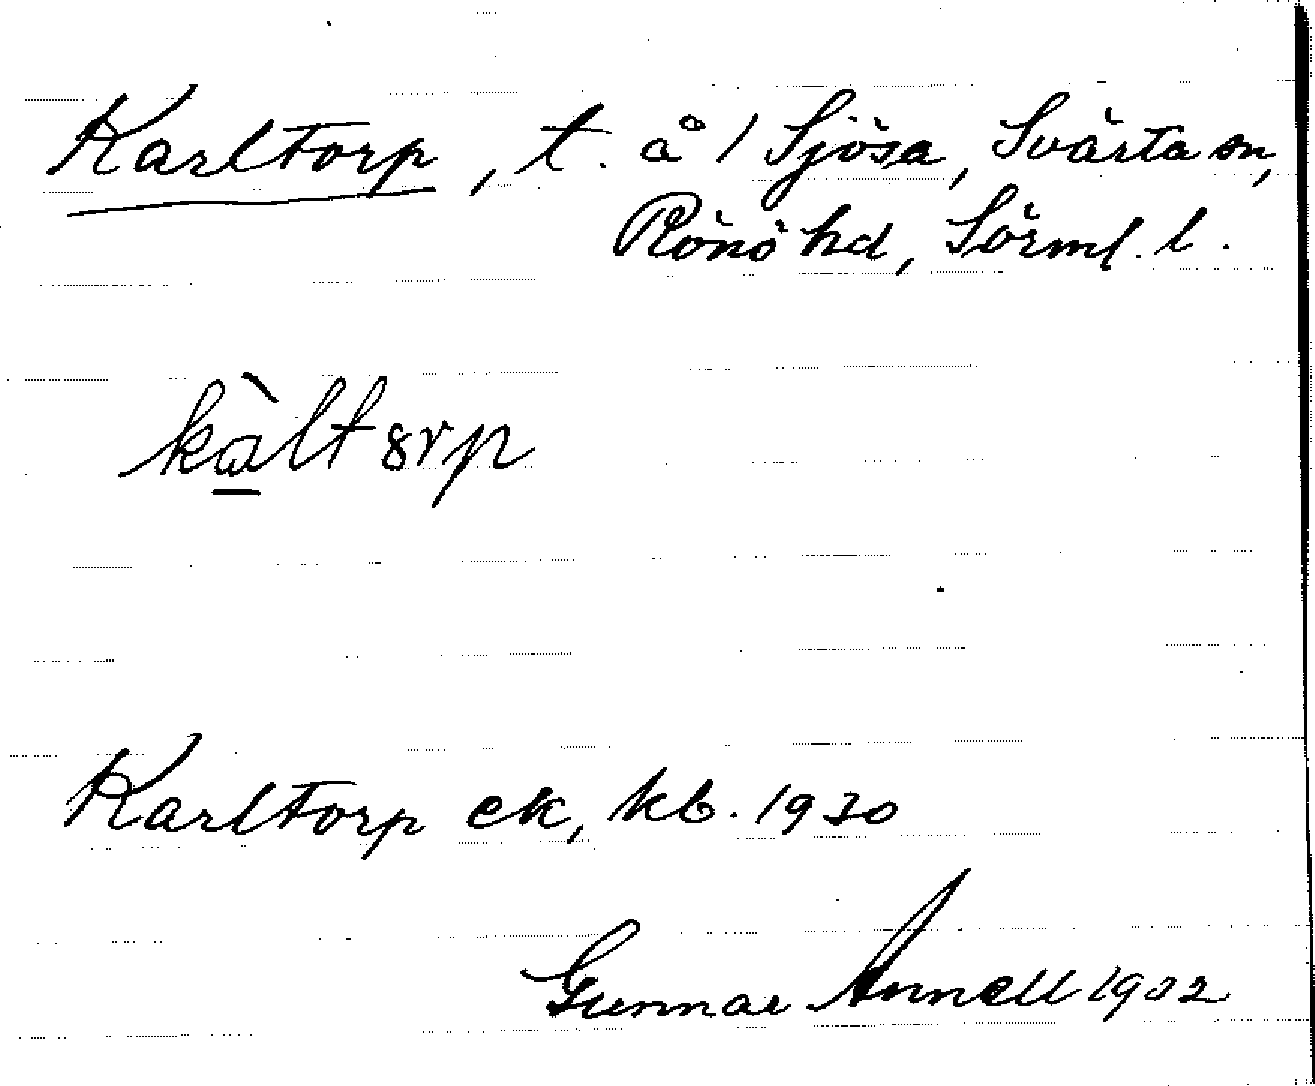 Karltorp, t. å 1 Sjösa, Svärta sn,
Rönö hd, Sörml. l.
kàltȣrp
Karltorp ek, kb. 1930
Gunnar Annell 1932